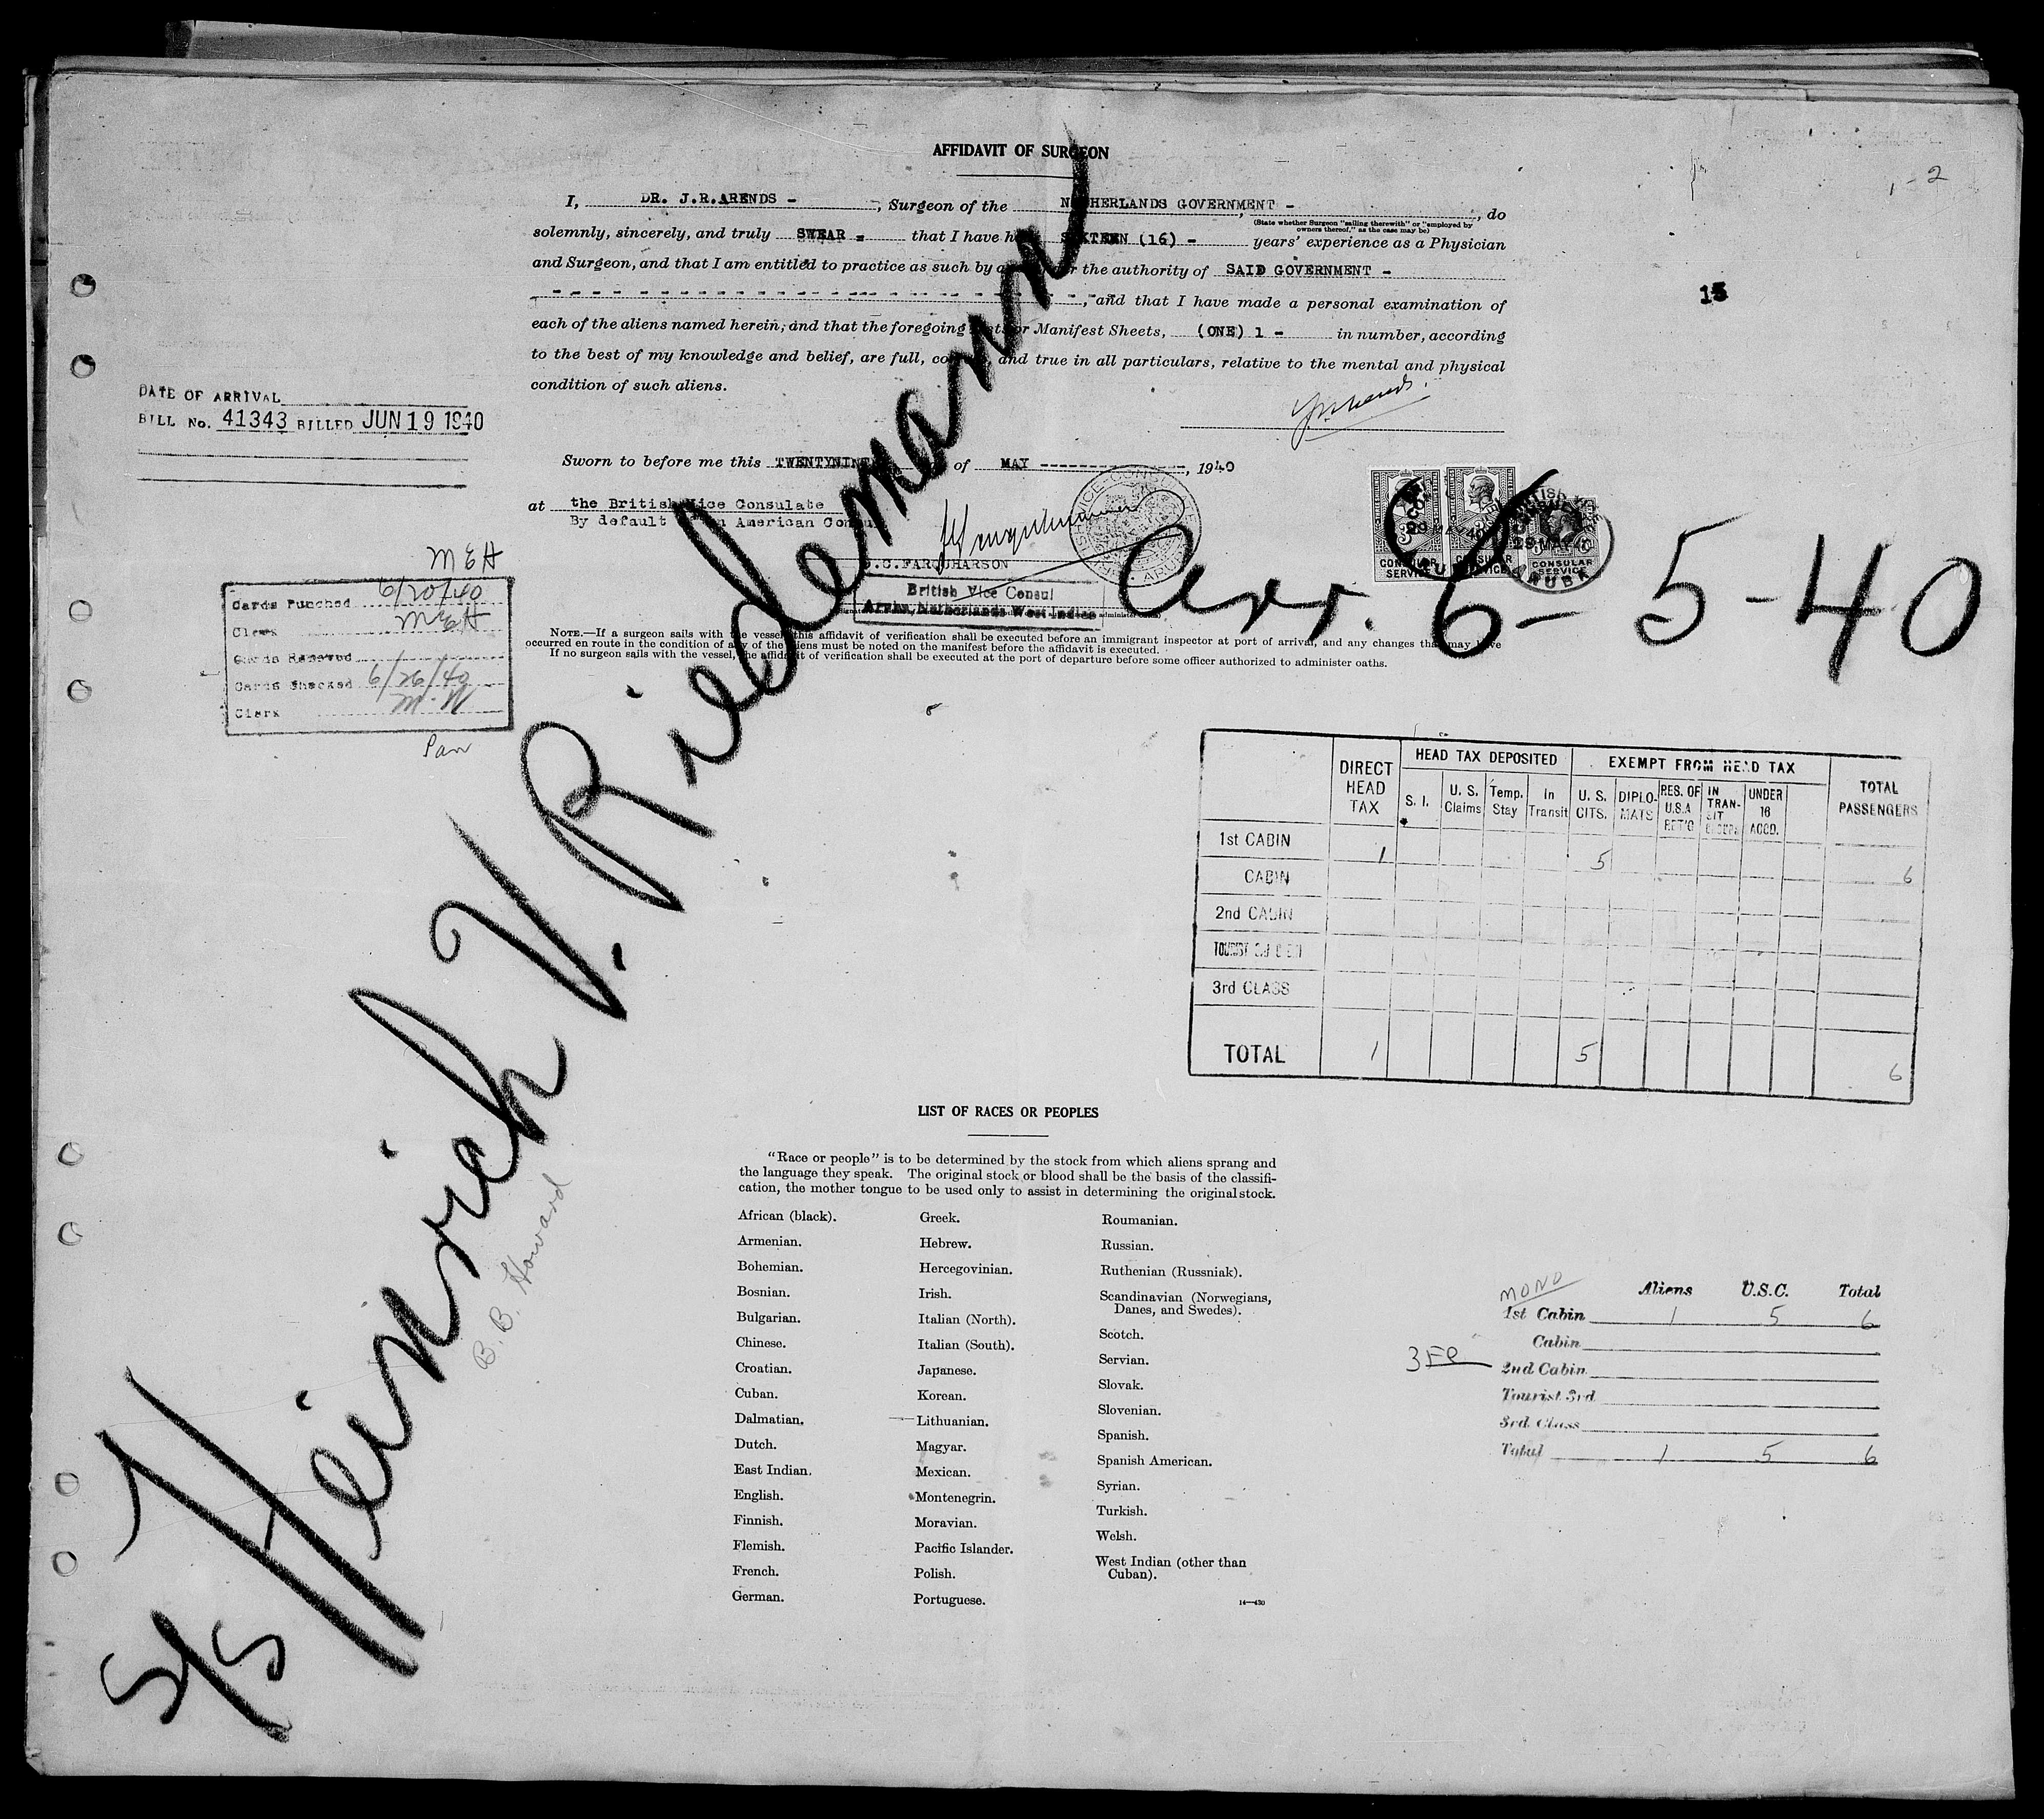 AFFIDAVIT OF SURGEON
1-2
I, DR. J.R.ARENDS -, Surgeon of the NETHERLANDS GOVERNMENT -, do
(State whether Surgeon "sailing therewith" or "employed by
owners thereof," as the case may be)
solemnly, sincerely, and truly SWEAR - that I have h SIXTEEN (16) - years' experience as a Physician
and Surgeon, and that I am entitled to practice as such by a r the authority of SAID GOVERNMENT -
, and that I have made a personal examination of
15
each of the aliens named herein, and that the foregoing or Manifest Sheets, (ONE) 1 - in number, according
to the best of my knowledge and belief, are full, co and true in all particulars, relative to the mental and physical
condition of such aliens.
DATE OF ARRIVAL
BILL No. 41343 BILLED JUN 19 1940
Sworn to before me this TWENTYNINT of MAY, 1940
at the British Vice Consulate
By default American Consu
J.C.FARQUHARSON
British Vice Consul
Aruba, Netherlands West Indies
CONSULAR SERVICE
CONSULAR SERVICE
CONSULAR SERVICE
29 MAY 40
ARUBA
Arr. 6-5-40
MEH
Cards Punched 6/20/40
Clerk MEH
Cards Removed
Cards Checked 6/26/40
Clerk M.W
NOTE.—If a surgeon sails with the vessel, this affidavit of verification shall be executed before an immigrant inspector at port of arrival, and any changes that may have
occurred en route in the condition of any of the aliens must be noted on the manifest before the affidavit is executed.
If no surgeon sails with the vessel, the affidavit of verification shall be executed at the port of departure before some officer authorized to administer oaths.
S/S Heinrich V. Riedemann
B. B. Howard
DIRECT HEAD TAX
HEAD TAX DEPOSITED
EXEMPT FROM HEAD TAX
TOTAL PASSENGERS
S. I. U. S. Claims Temp. Stay In Transit U. S. CITS. DIPLO-MATS RES. OF U.S.A RET'G IN TRAN-SIT UNDER 16 ACCD.
1st CABIN 1 5 6
CABIN
2nd CABIN
TOURIST
3rd CLASS
TOTAL 1 5 6
LIST OF RACES OR PEOPLES
"Race or people" is to be determined by the stock from which aliens sprang and
the language they speak. The original stock or blood shall be the basis of the classifi-
cation, the mother tongue to be used only to assist in determining the original stock.
African (black).
Armenian.
Bohemian.
Bosnian.
Bulgarian.
Chinese.
Croatian.
Cuban.
Dalmatian.
Dutch.
East Indian.
English.
Finnish.
Flemish.
French.
German.
Greek.
Hebrew.
Hercegovinian.
Irish.
Italian (North).
Italian (South).
Japanese.
Korean.
Lithuanian.
Magyar.
Mexican.
Montenegrin.
Moravian.
Pacific Islander.
Polish.
Portuguese.
Roumanian.
Russian.
Ruthenian (Russniak).
Scandinavian (Norwegians,
Danes, and Swedes).
Scotch.
Servian.
Slovak.
Slovenian.
Spanish.
Spanish American.
Syrian.
Turkish.
Welsh.
West Indian (other than
Cuban).
14—430
MONO
Aliens U.S.C. Total
1st Cabin 1 5 6
Cabin
2nd Cabin
Tourist 3rd
3rd Class
Total 1 5 6